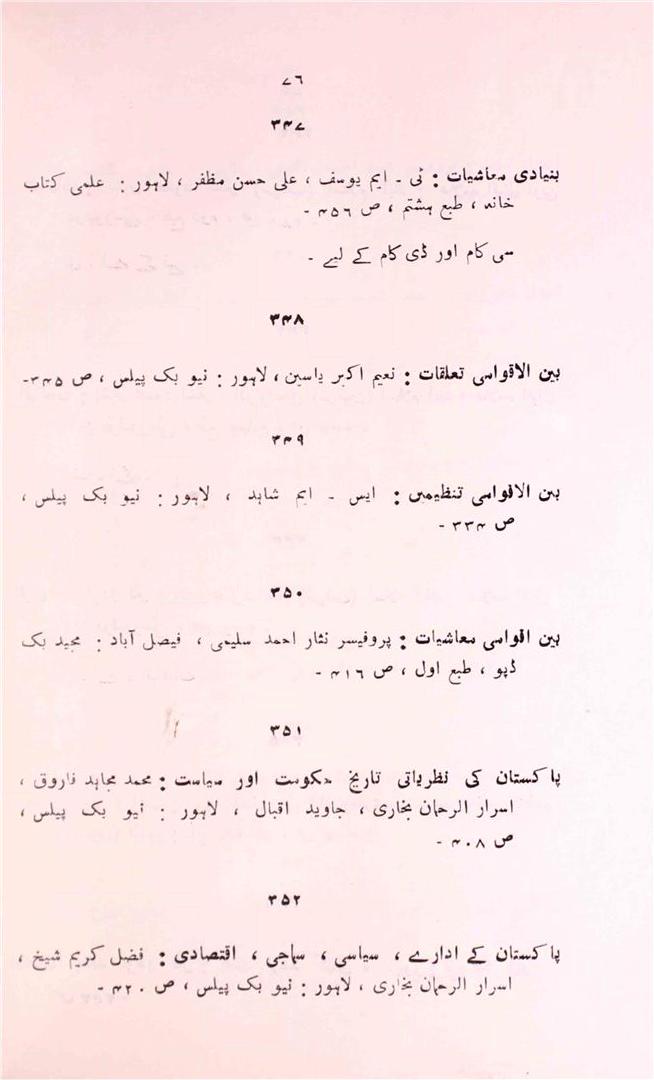 ۷۶
۳۴۷
بنیادی معاشیات : ٹی ۔ ایم یوسف ، علی حسن مظفر ، لاہور : علمی کتاب
خانہ ، طبع ہشتم ، ص ۴۵۶ ۔
سی کام اور ڈی کام کے لیے ۔
۳۴۸
بین الاقوامی تعلقات : نعیم اکبر یاسین ، لاہور : نیو بک پیلس ، ص ۳۴۵۔
۳۴۹
بین الاقوامی تنظیمیں : ایس ۔ ایم شاہد ، لاہور : نیو بک پیلس ،
ص ۳۳۴ ۔
۳۵۰
بین اقوامی معاشیات : پروفیسر نثار احمد سلیمی ، فیصل آباد : مجید بک
ڈپو ، طبع اول ، ص ۴۱۶ ۔
۳۵۱
پاکستان کی نظریاتی تاریخ حکومت اور سیاست : محمد مجاہد فاروق ،
اسرار الرحمان بخاری ، جاوید اقبال ، لاہور : نیو بک پیلس ،
ص ۴۰۸ ۔
۳۵۲
پاکستان کے ادارے ، سیاسی ، سماجی ، اقتصادی : فضل کریم شیخ ،
اسرار الرحمان بخاری ، لاہور : نیو بک پیلس ، ص ۴۲۰ ۔